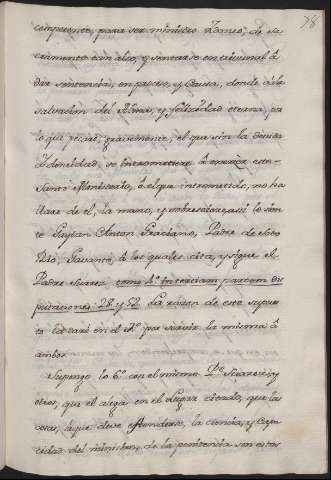 78
competente, para ser ministro Idoneo, de Sa
cramento tan alto, y sentarse en tribunal â
dar sentencia, en pleito, y Causa, donde â la
salvacion del Alma, y felicidad eterna, pa
lo qui pecará gravemente, el que sin la devida
Idoneidad, se Intrometiere â exercer este
Santo Ministerio, ô el que intrometido, no ha
llare de el, la mano, y
te Gaytan Anton Graciano, Padre de Soto
Dias, Gavanto, â los quales cita, y sigue el
Padre Suarez, tomo 4º Interciam partem dis
putaciones: 28 y 52 La raçon de este supues
to la daré en el 7º por servir la misma â
ambos.
Supongo lo 6º con el mismo Pe. Suarez, y
otros, que el alega en el Lugar citado, que las
cosas, â que deve estenderse, la ciencia, y Capa
cidad del ministro, de la penitencia son estas